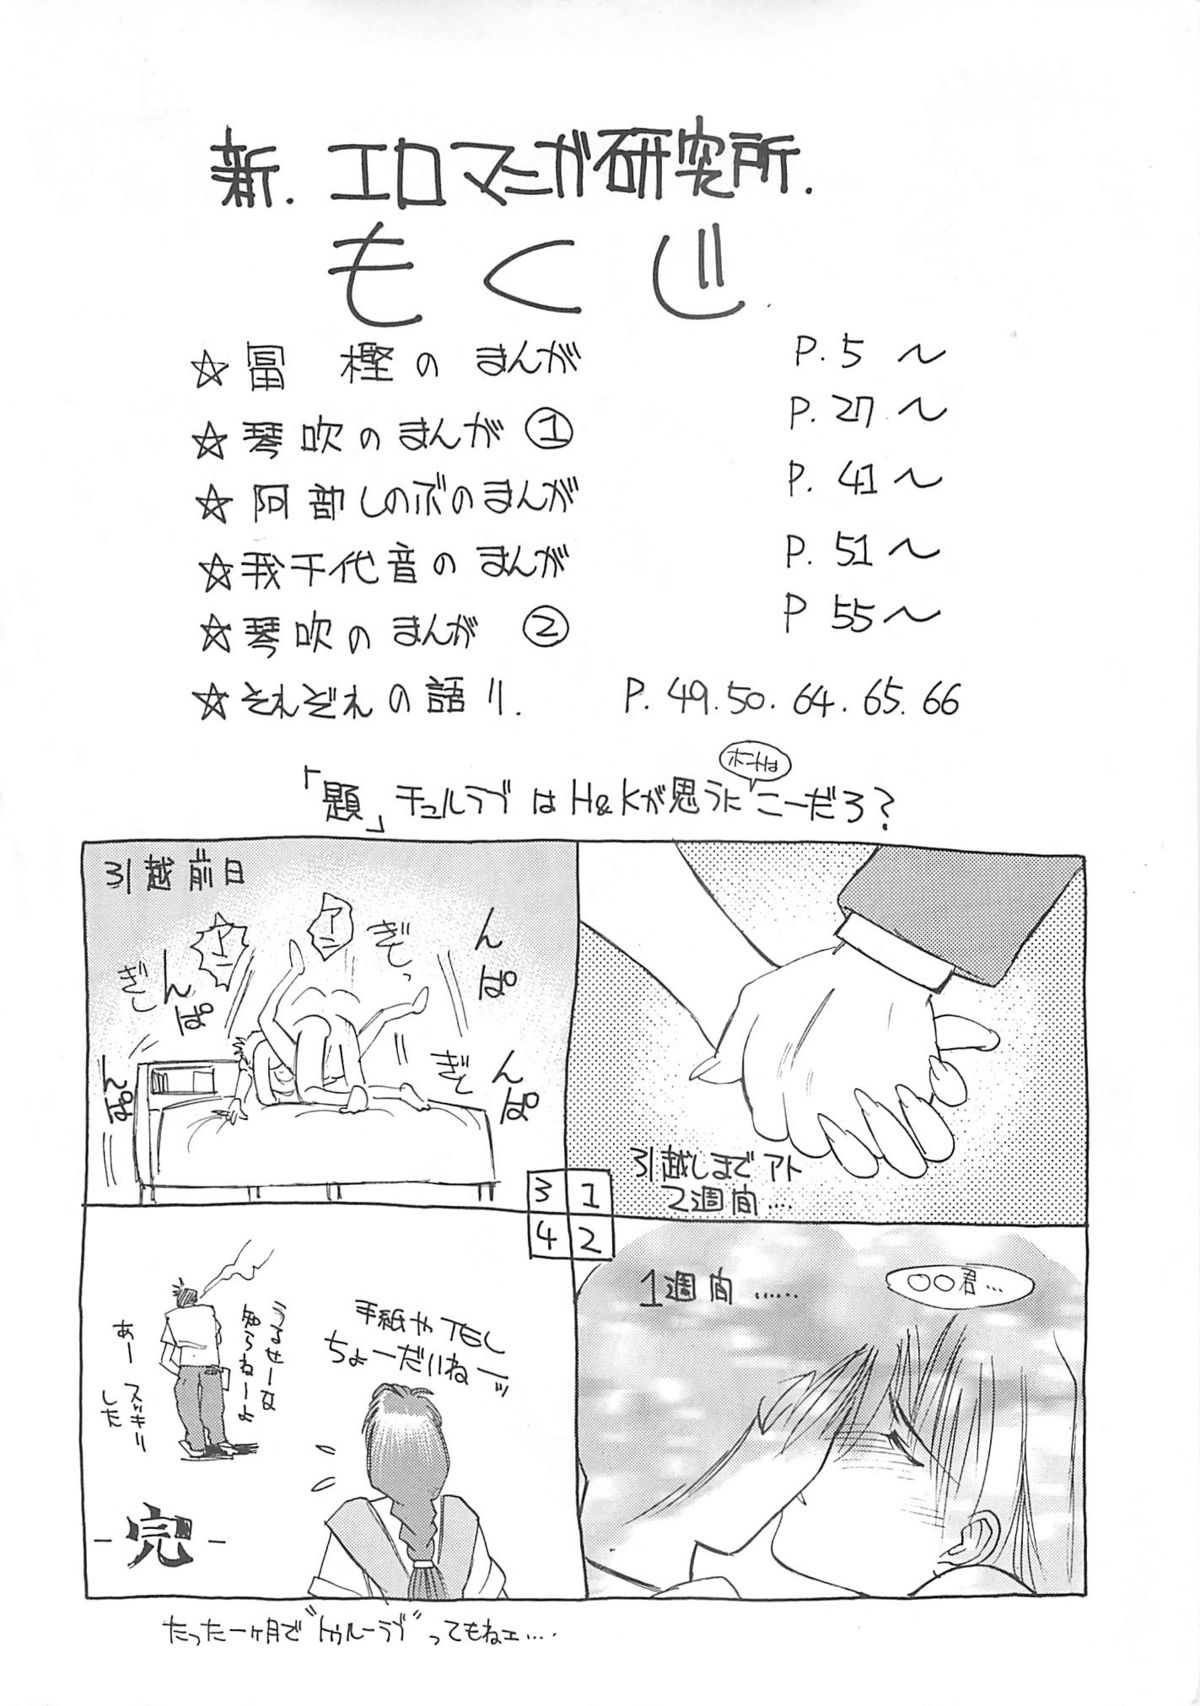 新.エロマニガ研究所.
もくじ
☆冨 樫のまんが P.5〜
☆琴吹のまんが① P.27〜
☆阿部しのぶのまんが P.41〜
☆我千代音のまんが P.51〜
☆琴吹のまんが② P55〜
☆それぞれの語り. P.49.50.64.65.66
ホントは
「題」チュルラブはH&Kが思うにこーだろ?
引越しまでアト
2週間‥‥
1週間……
○○君…
引越前日
アン
アン
ぎしっ
ぎし
ぎし
んぱ
んぱ
んぱ
ぱん
3 1
4 2
手紙やTEL
ちょーだいねーッ
うるせーな
知らねーよ
あー スッキリ
した
-完-
たった一ヶ月で"トゥルーラブ"ってもねェ‥‥